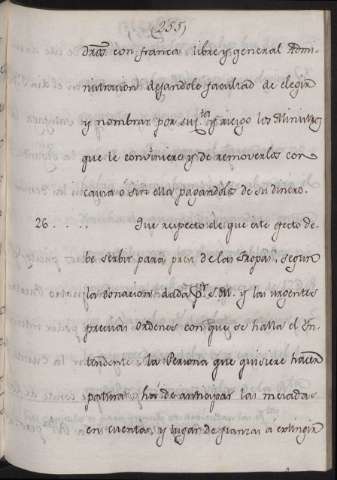 (255)
dros con franca libre y general Admi-
nistracion dejandole facultad de elegir
y nombrar por su qta y riezgo los Ministros
que le convinieren y de removerlos con
causa ó sin ella pagandolos de su dinero.
26.... Que respecto de que este efecto de-
be serbir para de las tropas, segun
la donacion dada pr. S.M. y las urgentes
precisas Ordenes con que se halla el In-
tendente: la Persona que quisiere hacer
ha de las mesadas
en cuentas, y lugar de fianzas á extinguir